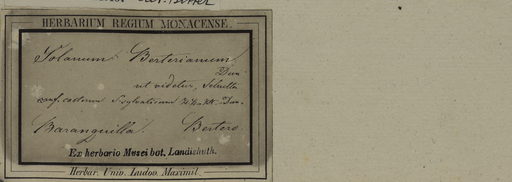 det. Bitter
HERBARIUM REGIUM MONACENSE.
Solanum Berterianum
Dun
ut videtur,
conf. caeterum S. sylvaticum
Baranquilla. Bertero
Ex herbario Musei bot. Landishuth.
Herbar. Univ. Ludov. Maximil.